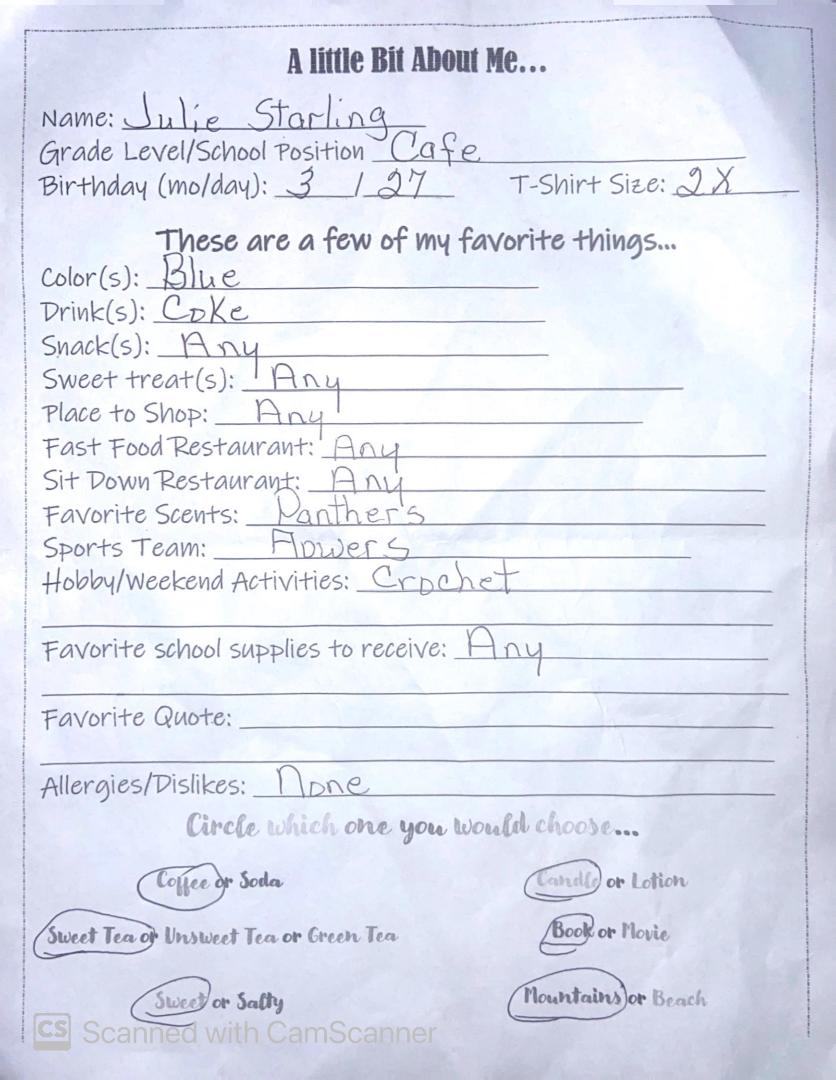 A little Bit About Me...
Name: Julie Starling
Grade Level/School Position Cafe
Birthday (mo/day): 3 / 27 T-Shirt Size: 2X
These are a few of my favorite things...
Color(s): Blue
Drink(s): Coke
Snack(s): Any
Sweet treat(s): Any
Place to Shop: Any
Fast Food Restaurant: Any
Sit Down Restaurant: Any
Favorite Scents: Panther's
Sports Team: Flowers
Hobby/Weekend Activities: Crochet
Favorite school supplies to receive: Any
Favorite Quote:
Allergies/Dislikes: None
Circle which one you would choose...
Coffee or Soda Candle or Lotion
Sweet Tea or Unsweet Tea or Green Tea Book or Movie
Sweet or Salty Mountains or Beach
CS Scanned with CamScanner